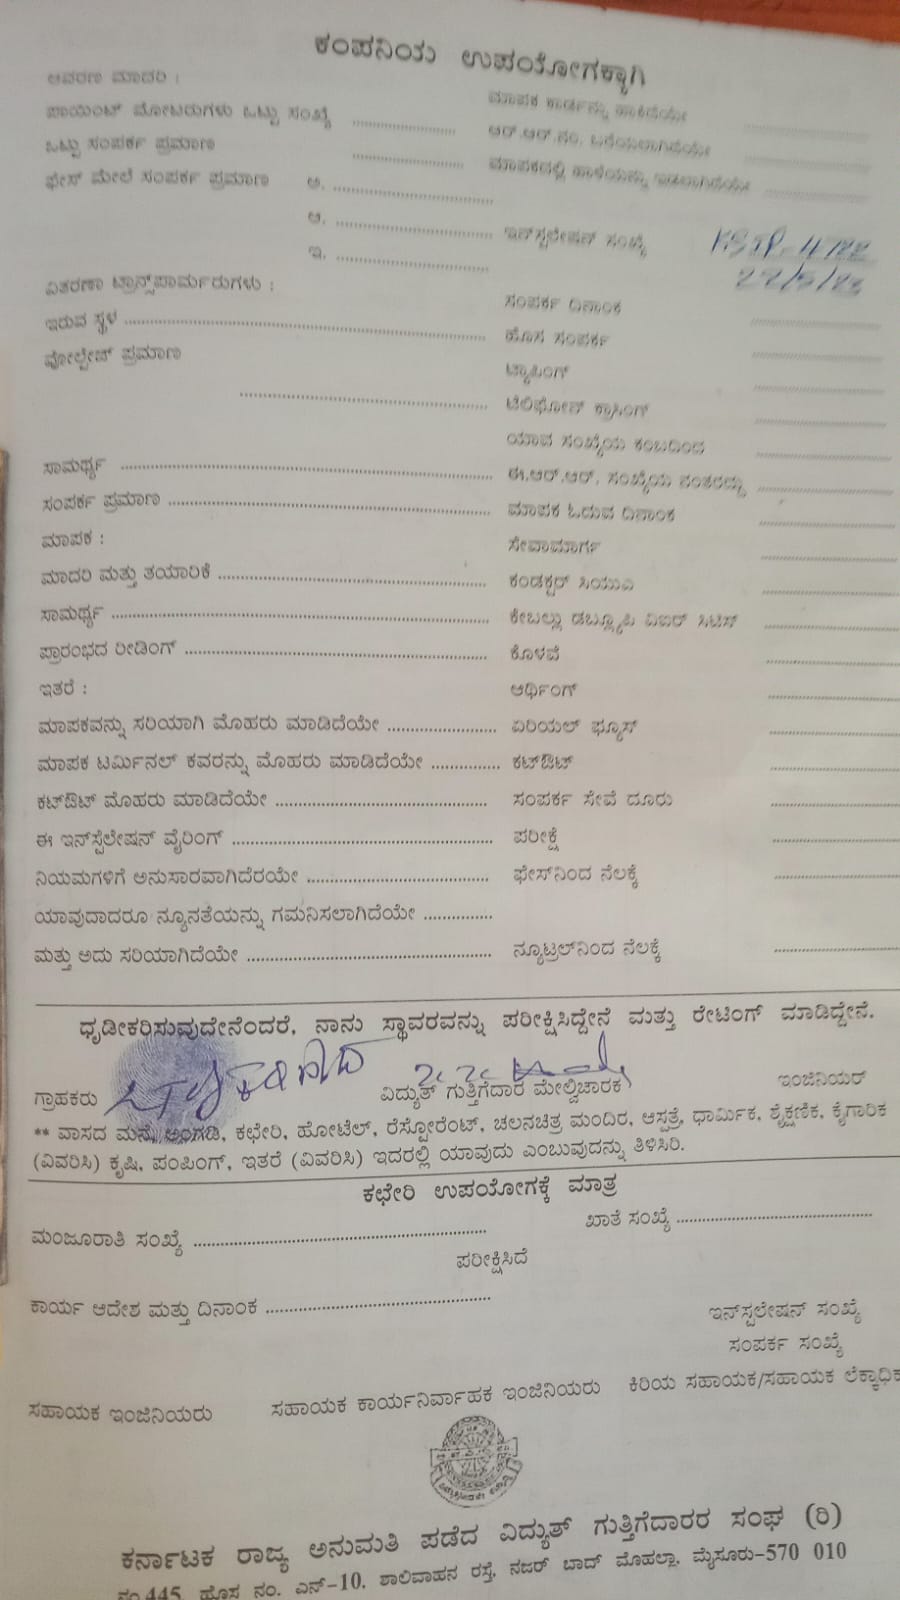 ಕಂಪನಿಯ ಉಪಯೋಗಕ್ಕಾಗಿ
ಆವರಣ ಮಾದರಿ :
ಮಾಪಕ ಕಾರ್ಡನ್ನು ಹಾಕಿದೆಯೇ
ಪಾಯಿಂಟ್ ಮೋಟರುಗಳು ಒಟ್ಟು ಸಂಖ್ಯೆ
ಆರ್.ಆರ್.ನಂ. ಬರೆಯಲಾಗಿದೆಯೇ
ಒಟ್ಟು ಸಂಪರ್ಕ ಪ್ರಮಾಣ
ಮಾಪಕದಲ್ಲಿ ಹಾಳೆಯನ್ನು ಇಡಲಾಗಿದೆಯೇ
ಫೇಸ್ ಮೇಲೆ ಸಂಪರ್ಕ ಪ್ರಮಾಣ ಅ.
ಆ. ಇನ್‌ಸ್ಟಲೇಷನ್ ಸಂಖ್ಯೆ
ಇ.
ವಿತರಣಾ ಟ್ರಾನ್ಸ್‌ಫಾರ್ಮರುಗಳು :
ಸಂಪರ್ಕ ದಿನಾಂಕ
ಇರುವ ಸ್ಥಳ
ಹೊಸ ಸಂಪರ್ಕ
ವೋಲ್ಟೇಜ್ ಪ್ರಮಾಣ
ಟ್ಯಾಪಿಂಗ್
ಟೆಲಿಫೋನ್ ಕ್ರಾಸಿಂಗ್
ಯಾವ ಸಂಖ್ಯೆಯ ಕಂಬದಿಂದ
ಸಾಮರ್ಥ್ಯ ಈ.ಆರ್.ಆರ್. ಸಂಖ್ಯೆಯ ನಂತರದ್ದು
ಸಂಪರ್ಕ ಪ್ರಮಾಣ ಮಾಪಕ ಓದುವ ದಿನಾಂಕ
ಮಾಪಕ : ಸೇವಾಮಾರ್ಗ
ಮಾದರಿ ಮತ್ತು ತಯಾರಿಕೆ ಕಂಡಕ್ಟರ್
ಸಾಮರ್ಥ್ಯ ಕೇಬಲ್ಲು
ಪ್ರಾರಂಭದ ರೀಡಿಂಗ್ ಕೊಳವೆ
ಇತರೆ : ಆರ್ಥಿಂಗ್
ಮಾಪಕವನ್ನು ಸರಿಯಾಗಿ ಮೊಹರು ಮಾಡಿದೆಯೇ ಏರಿಯಲ್ ಫ್ಯೂಸ್
ಮಾಪಕ ಟರ್ಮಿನಲ್ ಕವರನ್ನು ಮೊಹರು ಮಾಡಿದೆಯೇ ಕಟ್‌ಔಟ್
ಕಟ್‌ಔಟ್ ಮೊಹರು ಮಾಡಿದೆಯೇ ಸಂಪರ್ಕ ಸೇವೆ ದೂರು
ಈ ಇನ್‌ಸ್ಟೆಲೇಷನ್ ವೈರಿಂಗ್ ಪರೀಕ್ಷೆ
ನಿಯಮಗಳಿಗೆ ಅನುಸಾರವಾಗಿದೆರಯೇ ಫೇಸ್‌ನಿಂದ ನೆಲಕ್ಕೆ
ಯಾವುದಾದರೂ ನ್ಯೂನತೆಯನ್ನು ಗಮನಿಸಲಾಗಿದೆಯೇ
ಮತ್ತು ಅದು ಸರಿಯಾಗಿದೆಯೇ ನ್ಯೂಟ್ರಲ್‌ನಿಂದ ನೆಲಕ್ಕೆ
ಧೃಡೀಕರಿಸುವುದೇನೆಂದರೆ, ನಾನು ಸ್ಥಾವರವನ್ನು ಪರೀಕ್ಷಿಸಿದ್ದೇನೆ ಮತ್ತು ರೇಟಿಂಗ್ ಮಾಡಿದ್ದೇನೆ.
ಗ್ರಾಹಕರು ವಿದ್ಯುತ್ ಗುತ್ತಿಗೆದಾರ ಮೇಲ್ವಿಚಾರಕ ಇಂಜಿನಿಯರ್
** ವಾಸದ ಮನೆ, ಅಂಗಡಿ, ಕಛೇರಿ, ಹೋಟೆಲ್, ರೆಸ್ಟೋರೆಂಟ್, ಚಲನಚಿತ್ರ ಮಂದಿರ, ಆಸ್ಪತ್ರೆ, ಧಾರ್ಮಿಕ, ಶೈಕ್ಷಣಿಕ, ಕೈಗಾರಿಕ
(ವಿವರಿಸಿ) ಕೃಷಿ, ಪಂಪಿಂಗ್, ಇತರೆ (ವಿವರಿಸಿ) ಇದರಲ್ಲಿ ಯಾವುದು ಎಂಬುವುದನ್ನು ತಿಳಿಸಿರಿ.
ಕಛೇರಿ ಉಪಯೋಗಕ್ಕೆ ಮಾತ್ರ
ಮಂಜೂರಾತಿ ಸಂಖ್ಯೆ ಖಾತೆ ಸಂಖ್ಯೆ
ಪರೀಕ್ಷಿಸಿದೆ
ಕಾರ್ಯ ಆದೇಶ ಮತ್ತು ದಿನಾಂಕ
ಇನ್‌ಸ್ಟಲೇಷನ್ ಸಂಖ್ಯೆ
ಸಂಪರ್ಕ ಸಂಖ್ಯೆ
ಸಹಾಯಕ ಇಂಜಿನಿಯರು ಸಹಾಯಕ ಕಾರ್ಯನಿರ್ವಾಹಕ ಇಂಜಿನಿಯರು ಕಿರಿಯ ಸಹಾಯಕ/ಸಹಾಯಕ ಲೆಕ್ಕಾಧಿಕ
ಕರ್ನಾಟಕ ರಾಜ್ಯ ಅನುಮತಿ ಪಡೆದ ವಿದ್ಯುತ್ ಗುತ್ತಿಗೆದಾರರ ಸಂಘ (ರಿ)
ನಂ.445, ಹೊಸ ನಂ. ಎನ್-10, ಶಾಲಿವಾಹನ ರಸ್ತೆ, ನಜರ್ ಬಾದ್ ಮೊಹಲ್ಲಾ, ಮೈಸೂರು-570 010